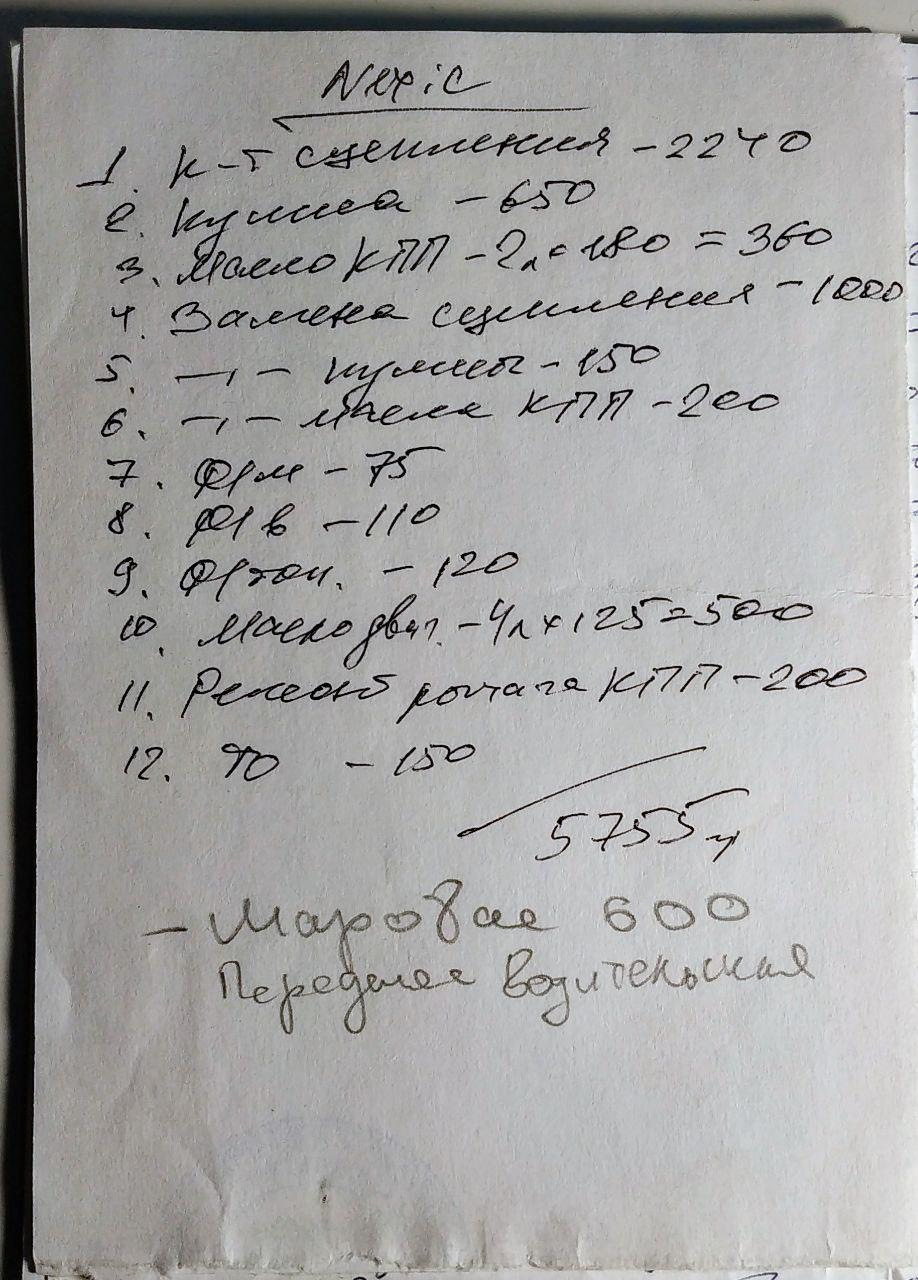 Nexia
1. К-т сцепления - 2240
2. Кулиса - 650
3. Масло КПП - 2л × 180 = 360
4. Замена сцепления - 1000
5. —,,— кулисы - 150
6. —,,— масла КПП - 200
7. Ф/м - 75
8. Ф/в - 110
9. Ф/топ. - 120
10. Масло двиг. - 4л × 125 = 500
11. Ремонт рычага КПП - 200
12. ТО - 150
5755
- Шаровая 600
Передняя водительская